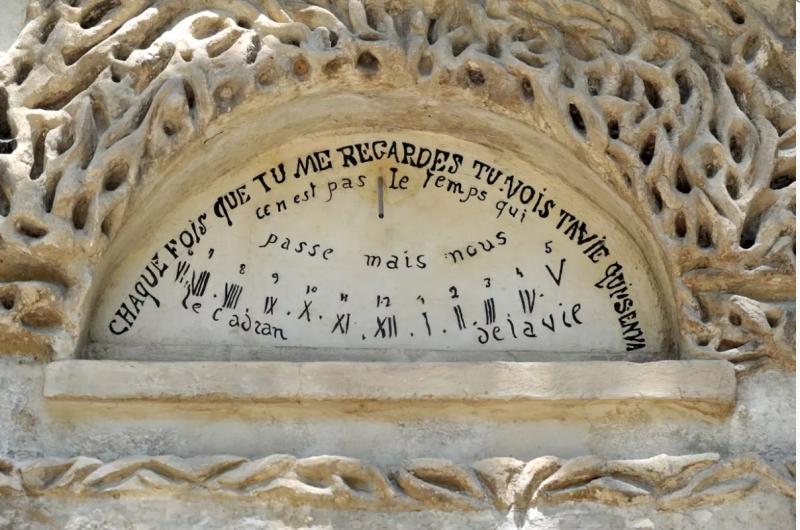 CHAQUE FOIS QUE TU ME REGARDES TU VOIS TA VIE QUI S'EN VA
ce n'est pas le Temps qui
passe mais nous
7 8 9 10 11 12 1 2 3 4 5
VI. VII. VIII. IX. X. XI. XII. I. II. III. IV. V
le cadran de la vie